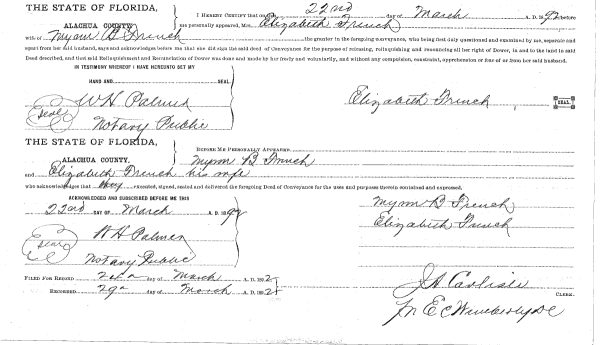 THE STATE OF FLORIDA,
ALACHUA COUNTY.
I HEREBY CERTIFY that on 22nd day of March A. D. 1892 before
me personally appeared, Mrs. Elizabeth French
wife of Myron B French the grantor in the foregoing conveyances, who being first duly questioned and examined by me, separate and
apart from her said husband, says and acknowledges before me that she did sign the said deed of Conveyance for the purpose of releasing, relinquishing and renouncing all her right of Dower, in and to the land in said
Deed described, and that said Relinquishment and Renunciation of Dower was done and made by her freely and voluntarily, and without any compulsion, constraint, apprehension or fear of or from her said husband.
IN TESTIMONY WHEREOF I HAVE HEREUNTO SET MY
HAND AND SEAL
Seal W H Palmer
Notary Public
Elizabeth French SEAL
THE STATE OF FLORIDA,
ALACHUA COUNTY,
BEFORE ME PERSONALLY APPEARED
Myron B French
and Elizabeth French his wife
who acknowledged that they executed, signed, sealed and delivered the foregoing Deed of Conveyance for the uses and purposes therein contained and expressed.
ACKNOWLEDGED AND SUBSCRIBED BEFORE ME THIS
22nd DAY OF March A. D. 1892
Seal W H Palmer
Notary Public
Myron B French
Elizabeth French
FILED FOR RECORD day of March A. D. 1892
RECORDED 29 day of March A. D. 1892
J A Carlisle
CLERK.
E C Wimberly DC